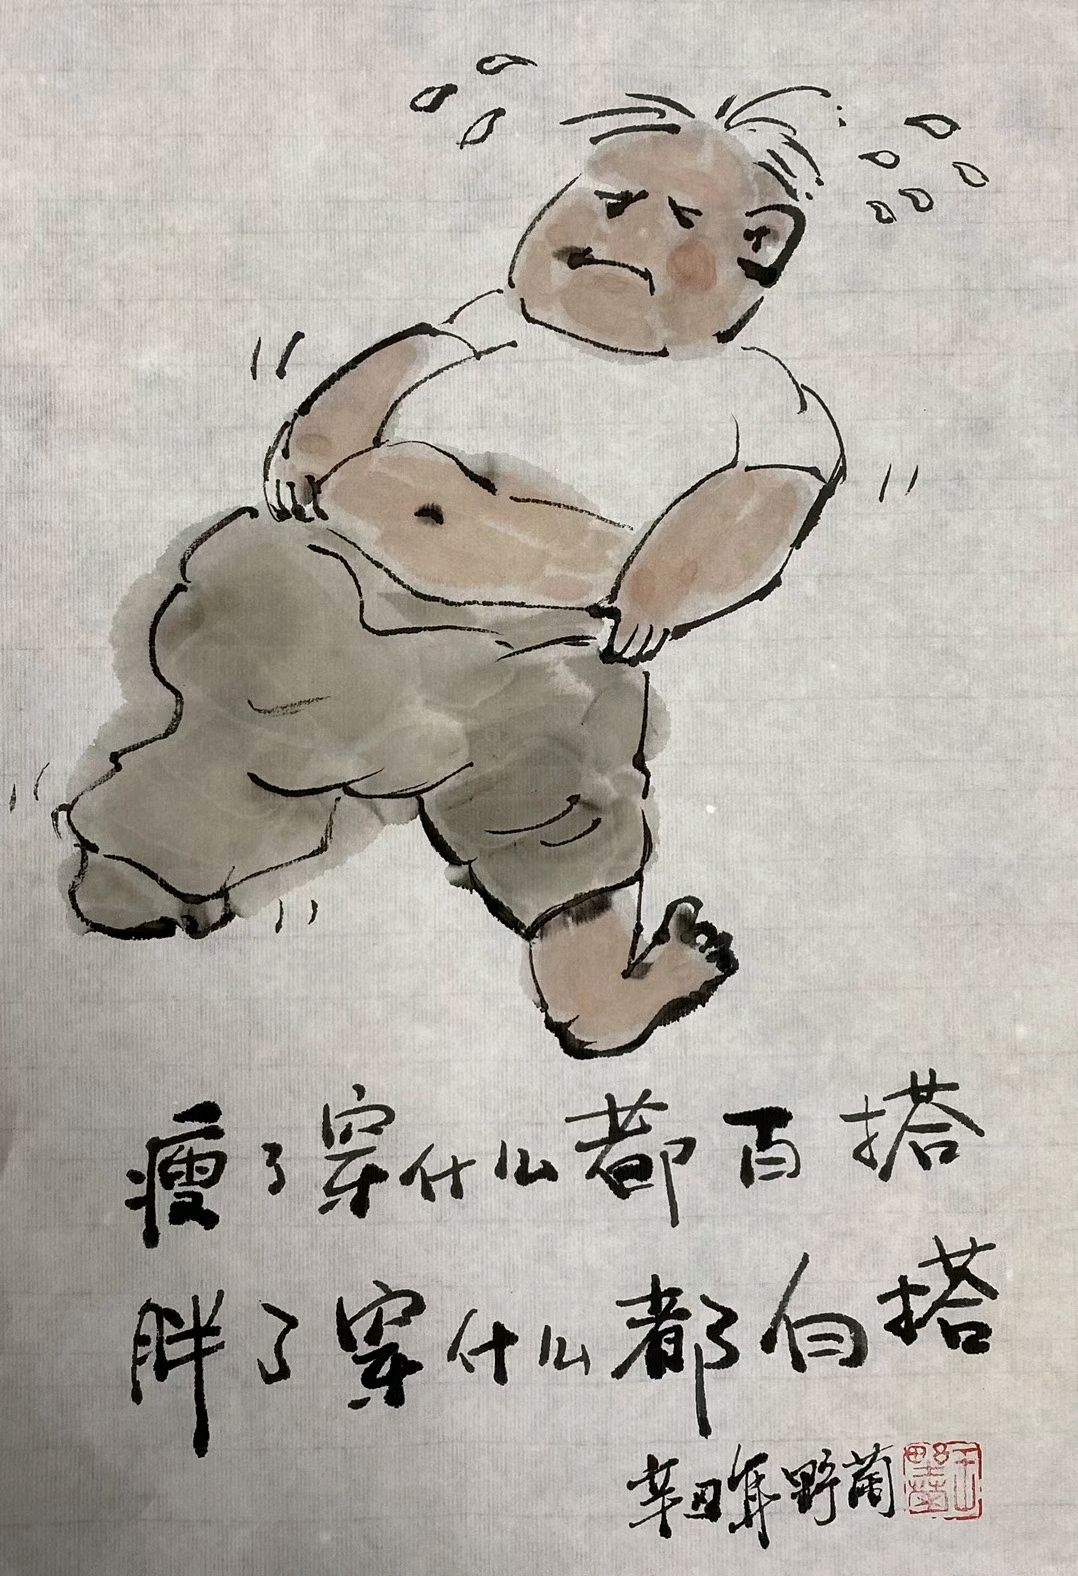 瘦了穿什么都百搭
胖了穿什么都白搭
辛丑年野蔔